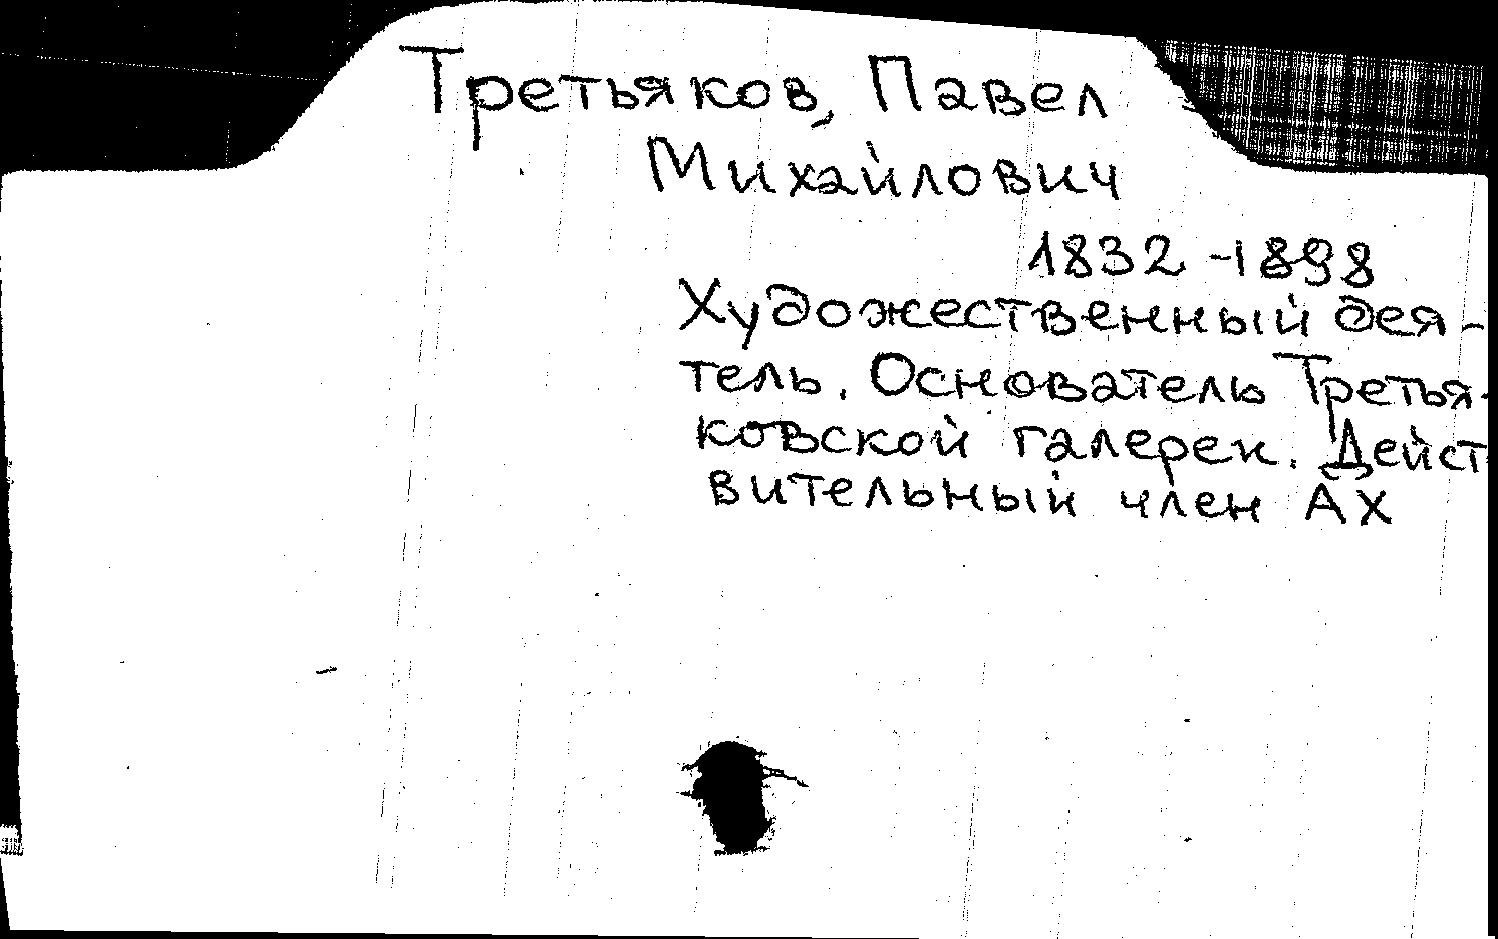 Третьяков, Павел
Михайлович
1832-1898
Художественный дея-
тель. Основатель Третья-
ковской галереи. Дейст
вительный член АХ